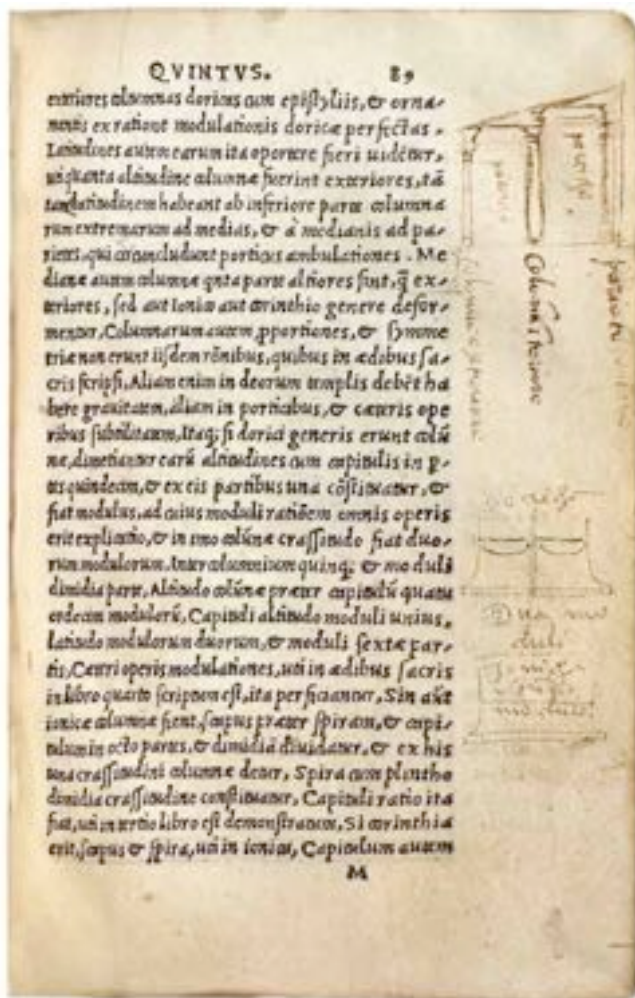 QVINTVS. 89
exteriores columnas doricas cum epistyliis, & orna-
mentis ex ratione modulationis doricæ perfectas.
Latitudines autem earum ita oportere fieri uidētur,
uti quanta altitudine columnæ fuerint exteriores, tā
tam latitudinem habeant ab inferiore parte columna
rum extremarum ad medias, & à medianis ad pa-
rietes, qui circuncludunt porticus ambulationes. Me
dianæ autem columnæ qnta parte altiores sint, q̃ ex-
teriores, sed aut Ionico aut corinthio genere defor-
mentur, Columnarum autem ꝓportiones, & symme
triæ non erunt iisdem rōnibus, quibus in ædibus sa-
cris scripsi, Aliam enim in deorum templis debēt ha
bere grauitatem, aliam in porticibus, & cæteris ope
ribus subtilitatem, Itaq; si dorici generis erunt colū
næ, dimetiantur earū altitudines cum capitulis in p-
tes quindecim, & ex eis partibus una cōstituatur, &
fiat modulus, ad cuius moduli ratiōem omnis operis
erit explicatio, & in imo colūnæ crassitudo fiat duo-
rum modulorum, Intercolumnium quinq; & moduli
dimidia parte, Altitudo colūnæ præter capitulū quatu
ordecim modulorū, Capituli altitudo moduli unius,
latitudo modulorum duorum, & moduli sextæ par-
tis, Cæteri operis modulationes, uti in ædibus sacris
in libro quarto scriptum est, ita perficiantur, Sin aūt
ionicæ columnæ fient, scapus præter spiram, & capi-
tulum in octo partes, & dimidiā diuidatur, & ex his
una crassitudini columnæ detur, Spira cum plintho
dimidia crassitudine constituatur, Capituli ratio ita
fiat, uti in tertio libro est demonstratum, Si corinthia
erit, scapus & spira, uti in ionica, Capitulum autem
M
moduli